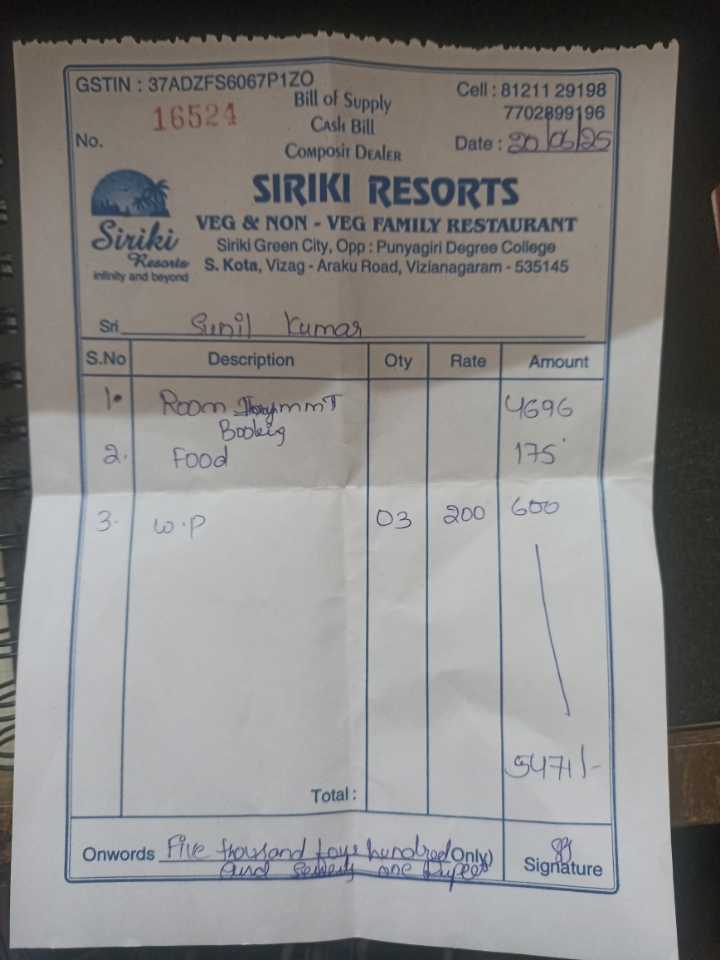 GSTIN : 37ADZFS6067P1ZO
Bill of Supply
Cell : 81211 29198
16524
Cash Bill
7702899196
No.
Composit Dealer
Date : 20/06/25
SIRIKI RESORTS
VEG & NON - VEG FAMILY RESTAURANT
Siriki
Siriki Green City, Opp : Punyagiri Degree College
Resorts
S. Kota, Vizag - Araku Road, Vizianagaram - 535145
infinity and beyond
Sri Sunil Kumar
S.No Description Qty Rate Amount
1. Room 4696
Booking
2. Food 175
3. W.P 03 200 600
5471/-
Total :
Onwords Five thousand four hundred Only)
and seventy one Rupees
Signature